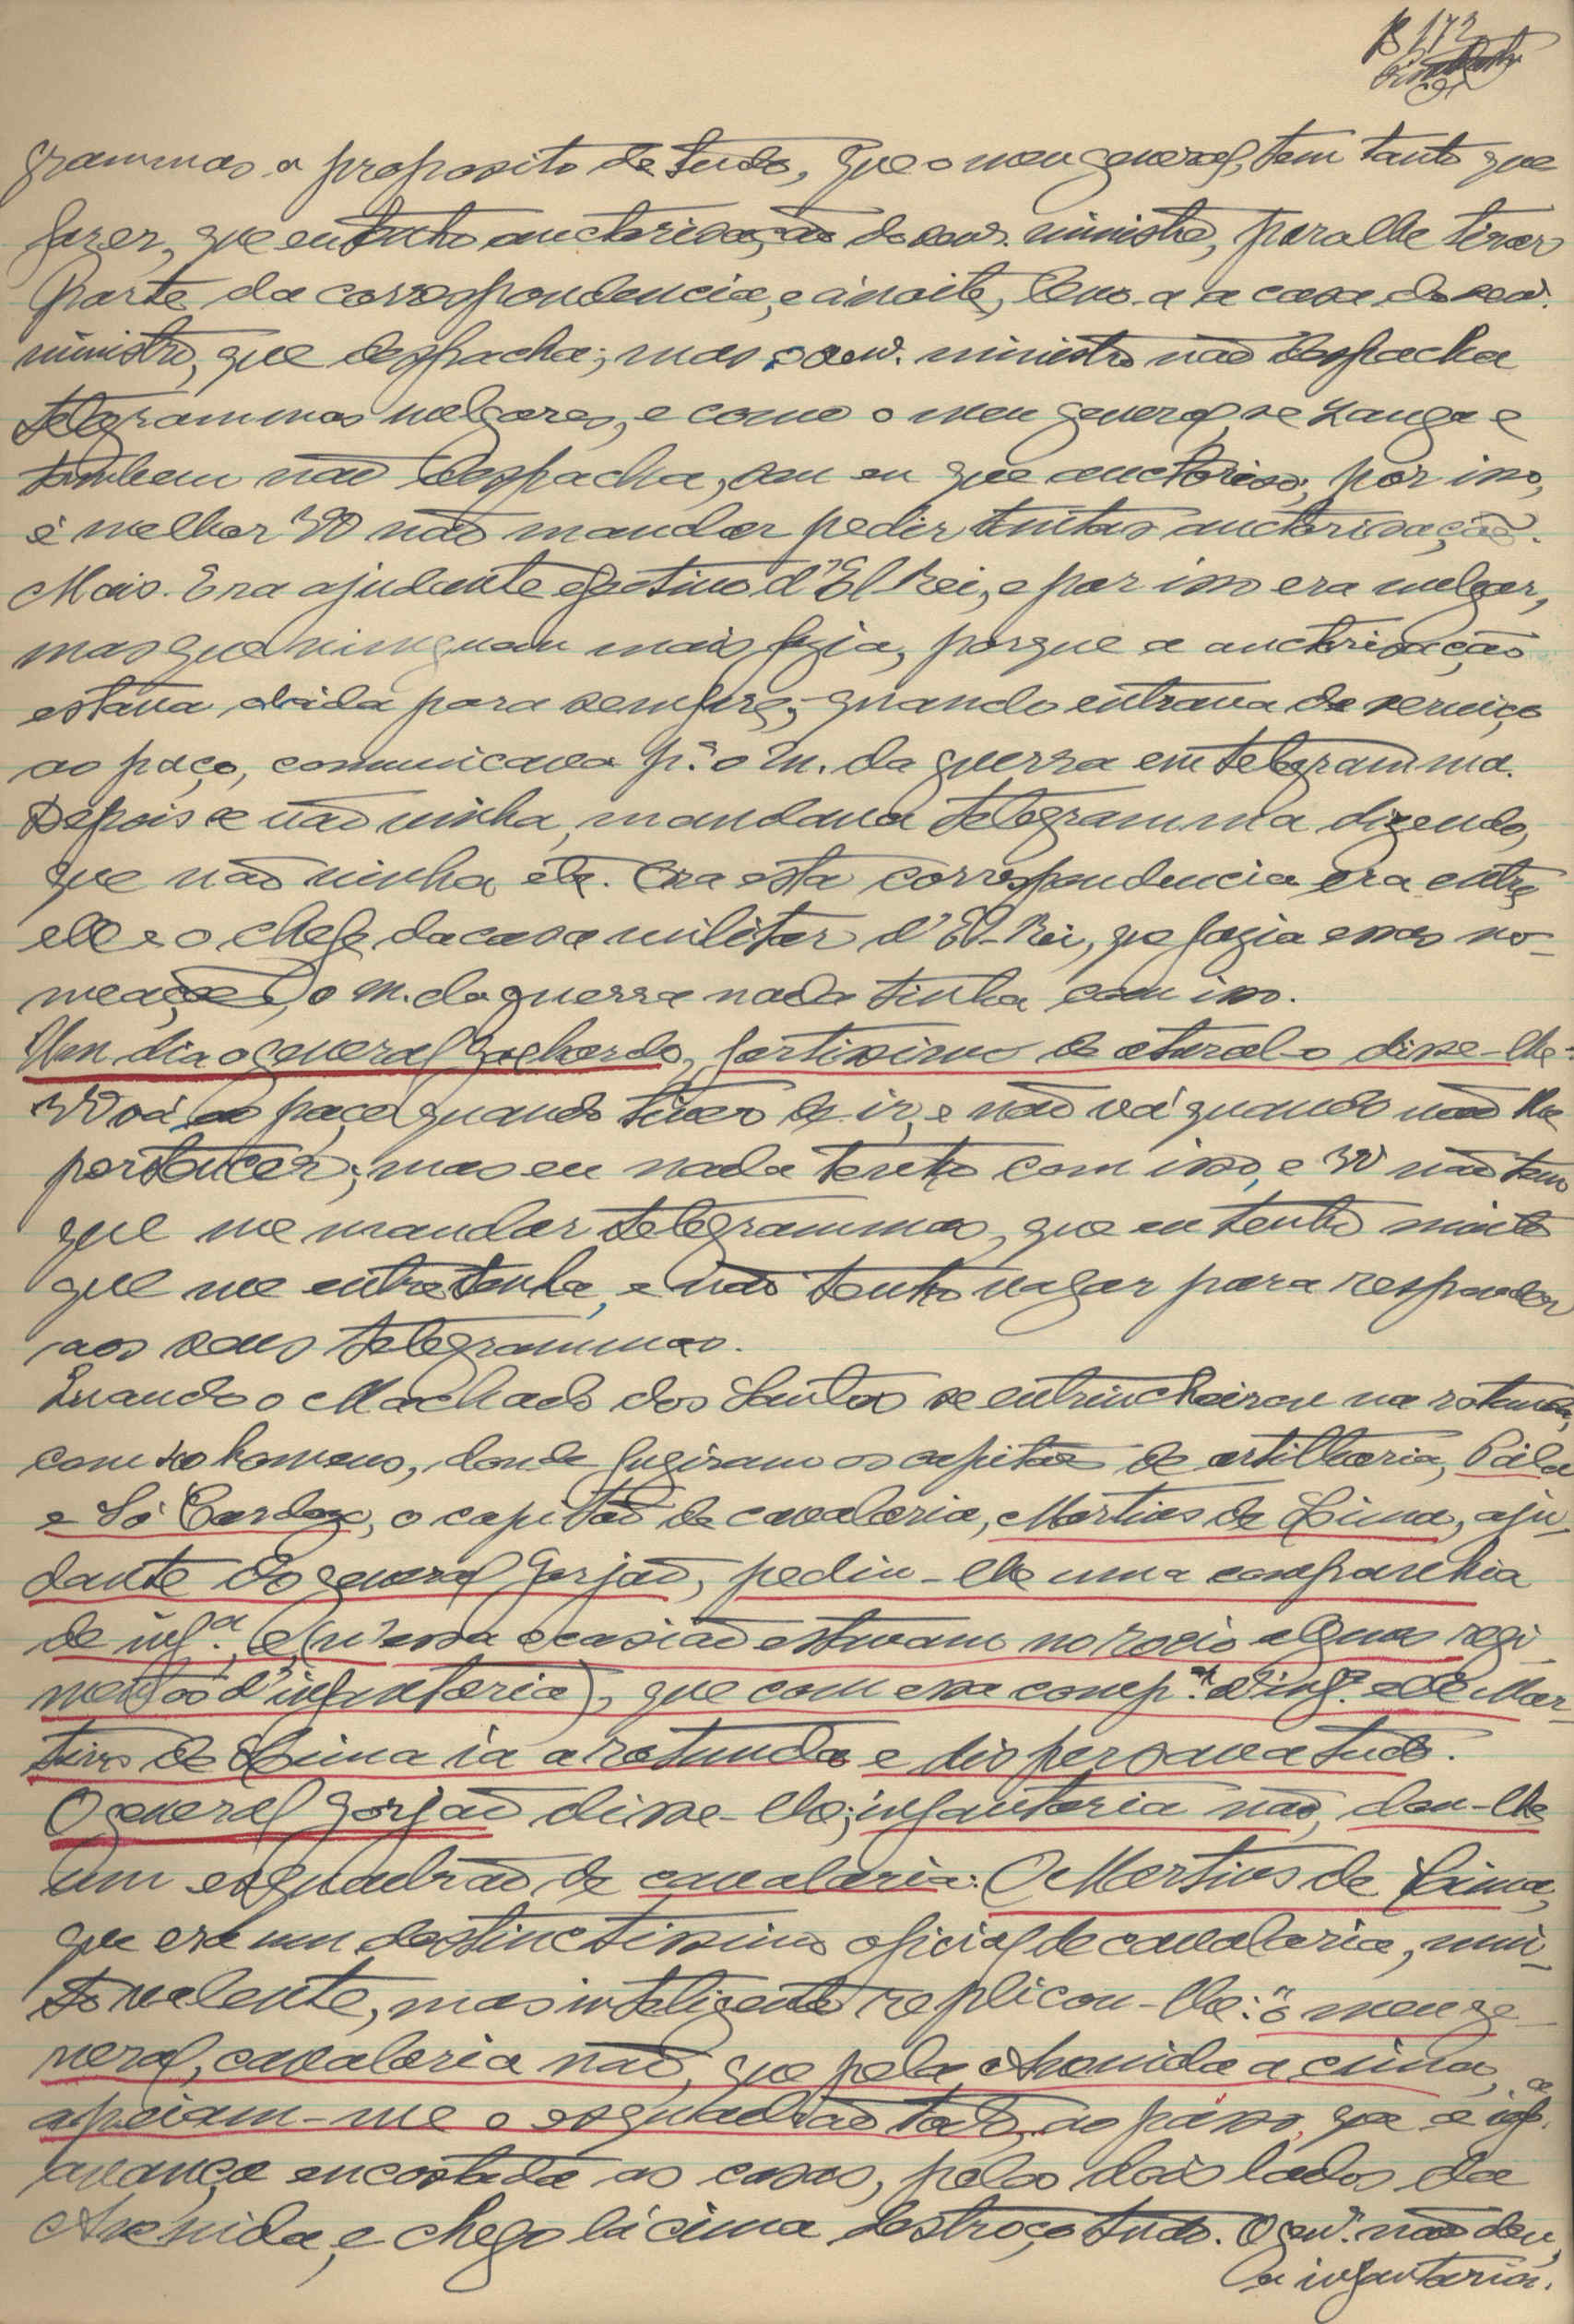 172
grammas a proposito de tudo, que o meu general, tem tanto que
fazer, que eu tenho auctorisação do snr. ministro, para lhe tirar
parte da correspondencia, e á noite, levo-a a casa do snr.
ministro, que despacha; mas, o snr. ministro não despacha
telegrammas vulgares, e como o meu general se zanga e
tambem não despacha, sou eu que auctoriso; por isso,
é melhor não mandar pedir tantas auctorisações.
Mais. Era ajudante efectivo d'El-Rei, e por isso era vulgar,
mas que ninguem mais fazia, porque a auctorisação
estava dada para sempre; quando entrava de serviço
ao paço, comunicava p.ª o m. da guerra em telegramma.
Depois se não vinha, mandava telegramma dizendo,
que não vinha etc. Ora esta correspondencia era entre
elle e o chefe da casa militar d'El-Rei, que fazia essas no-
meações, o m. da guerra nada tinha com isso.
Um dia o general, fartissimo de atural-o disse-lhe:
vá ao paço quando tiver de ir, e não vá quando não lhe
pertencer; mas eu nada tenho com isso, e não tem
que me mandar telegrammas, que eu tenho muito
que me entretenha, e não tenho vagar para responder
aos seus telegrammas.
Quando o Machado dos Santos se entrincheirou na rotunda,
com homens, donde fugiram os capitães de artilharia, Pála
e Sá Cardoso, o capitão de cavalaria, Martins de Lima, aju-
dante do general Gorjão, pediu-lhe uma companhia
de inf.ª, (n'essa ocasião estavam no rocio alguns regi-
mentos d'infantaria), que com essa comp.ª d'inf.ª elle Mar-
tins de Lima ia a rotunda e dispersava tudo.
O general Gorjão disse-lhe; infantaria não, dou-lhe
um esquadrão de cavalaria. O Martins de Lima,
que era um destinctissimo oficial de cavalaria, mui-
to valente, mas inteligente replicou-lhe: "ó meu ge-
neral, cavalaria não, que pela Avenida a cima,
apeiam-me o esquadrão todo, ao passo, que a inf.ª
avança encostada as casas, pelos dois lados da
Avenida, e chego lá cima destroço tudo. O gen.al não deu,
a infantaria.